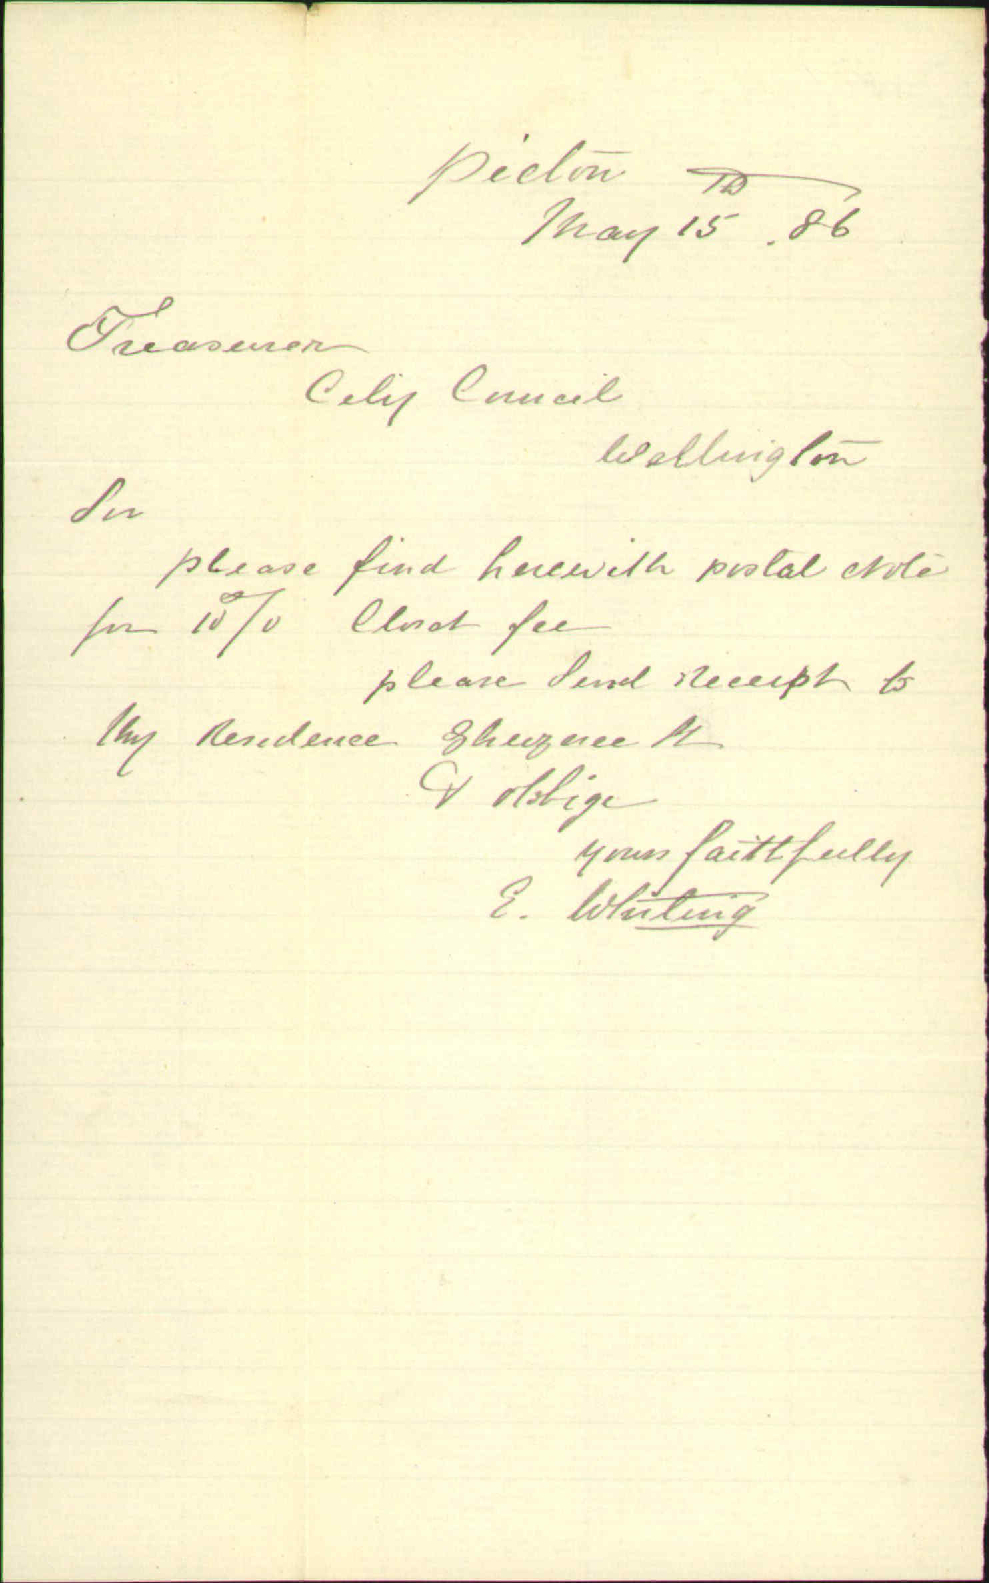 Picton
May 15th .86
Treasurer
City Council
Wellington
Sir
please find herewith postal Note
for 10/0 Closet fee
please Send Receipt to
My Residence Ghuznee St
& oblige
yours faithfully
E. Whiting